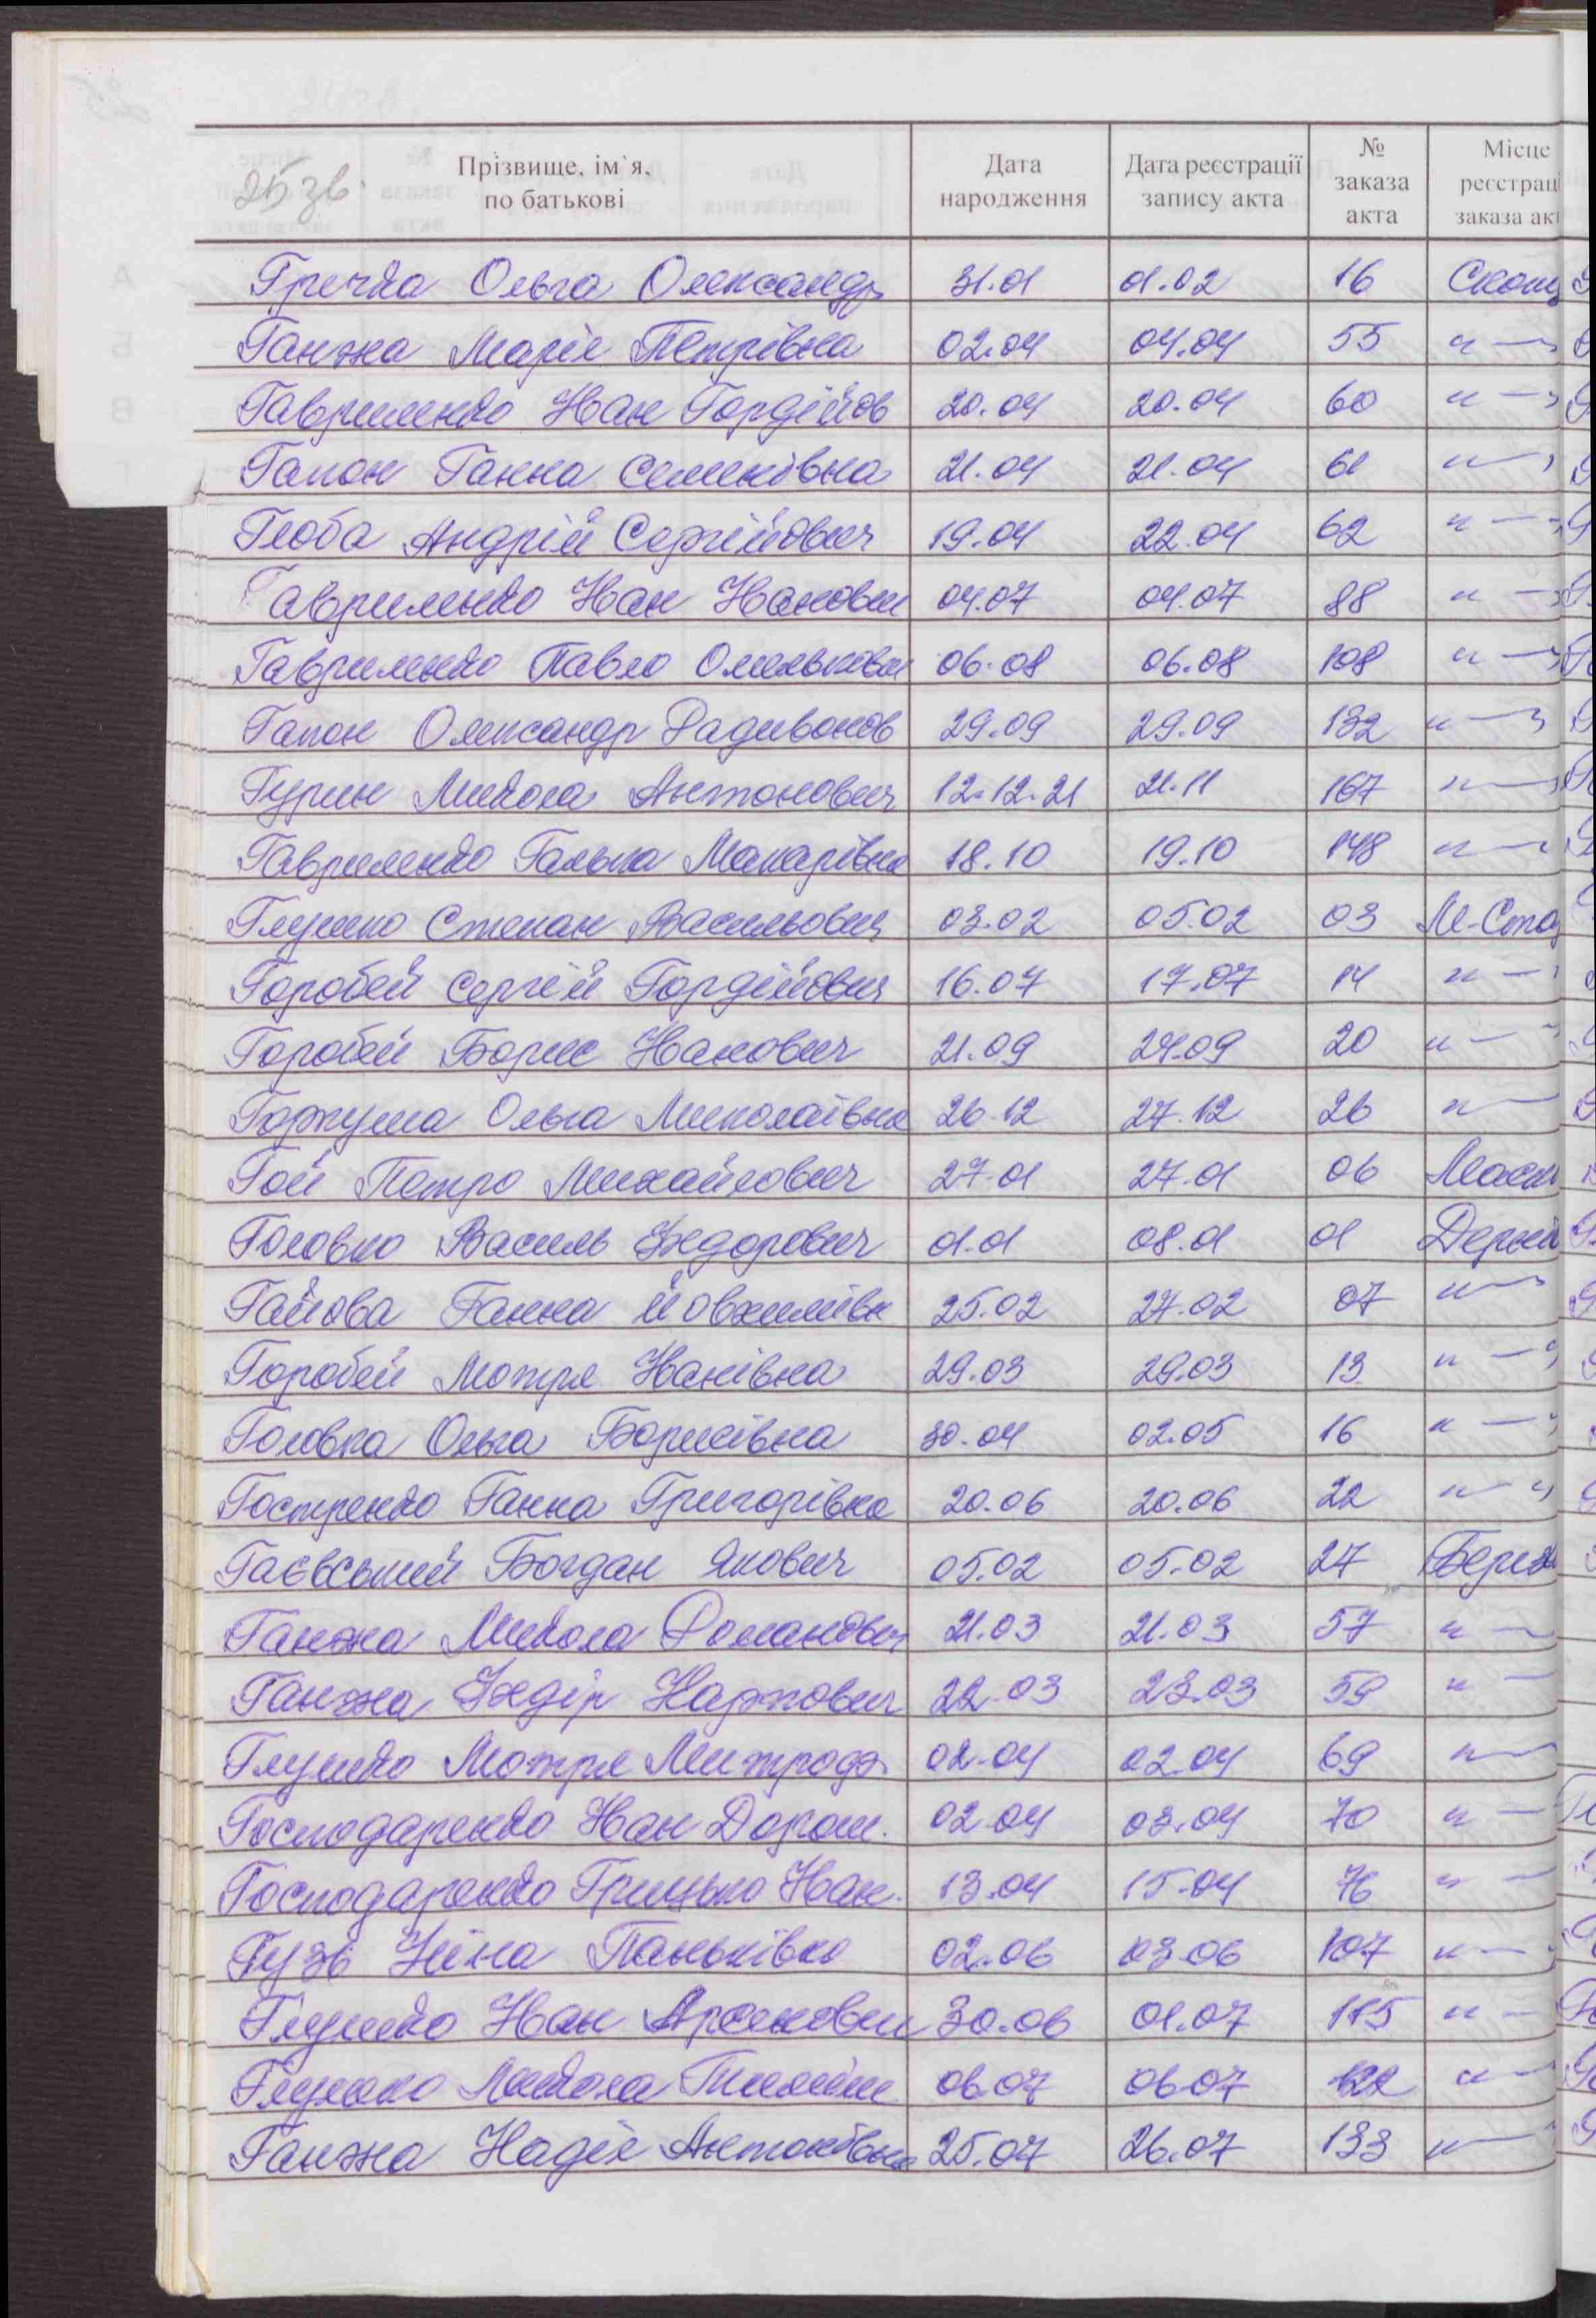 25 зв.
Прізвище, ім`я, по батькові | Дата народження | Дата реєстрації запису акта | № заказа акта | Місце реєстрац заказа ак
Гречка Ольга Олександр 31.01 01.02 16
Ганжа Марія Петрівна 02.04 04.04 55 "—"
Гавриленко Іван Гордійов 20.04 20.04 60 "—"
Гапон Ганна Семенівна 21.04 21.04 61 "—"
Глоба Андрій Сергійович 19.04 22.04 62 "—"
Гавриленко Іван Іванович 04.07 04.07 88 "—"
Гавриленко Павло Омелькович 06.08 06.08 108 "—"
Гапон Олександр Радивонов 29.09 29.09 132 "—"
Гурин Микола Антонович 12.12.21 21.11 167 "—"
Гавриленко Галька Макарівна 18.10 19.10 148 "—"
Глушко Степан Васильович 03.02 05.02 03 М-Спа
Горобей Сергій Гордійович 16.07 17.07 14 "—"
Горобей Борис Іванович 21.09 24.09 20 "—"
Горкуша Ольга Миколаївна 26.12 27.12 26 "—"
Гой Петро Михайлович 27.01 27.01 06
Головко Василь Федорович 01.01 08.01 01 Дерей
Гайова Ганна Йовхимівн 25.02 27.02 07 "—"
Горобей Мотря Іванівна 29.03 29.03 13 "—"
Головка Ольга Борисівна 30.04 02.05 16 "—"
Гостренко Ганна Григорівна 20.06 20.06 22 "—"
Гаєвський Богдан Якович 05.02 05.02 27 Берез
Ганжа Микола Романович 21.03 21.03 57 "—"
Ганжа Федір Карпович 22.03 23.03 59 "—"
Глушко Мотря Митрод. 02.04 02.04 69 "—"
Господаренко Іван Дорош. 02.04 03.04 70 "—"
Господаренко Грицько Іван. 13.04 15.04 76 "—"
Гузь Ніна Паньківна 02.06 03.06 107 "—"
Глушко Іван 30.06 01.07 115 "—"
Глушко Микола 06.07 06.07 122 "—"
Ганжа Надія Антонівна 25.07 26.07 133 "—"